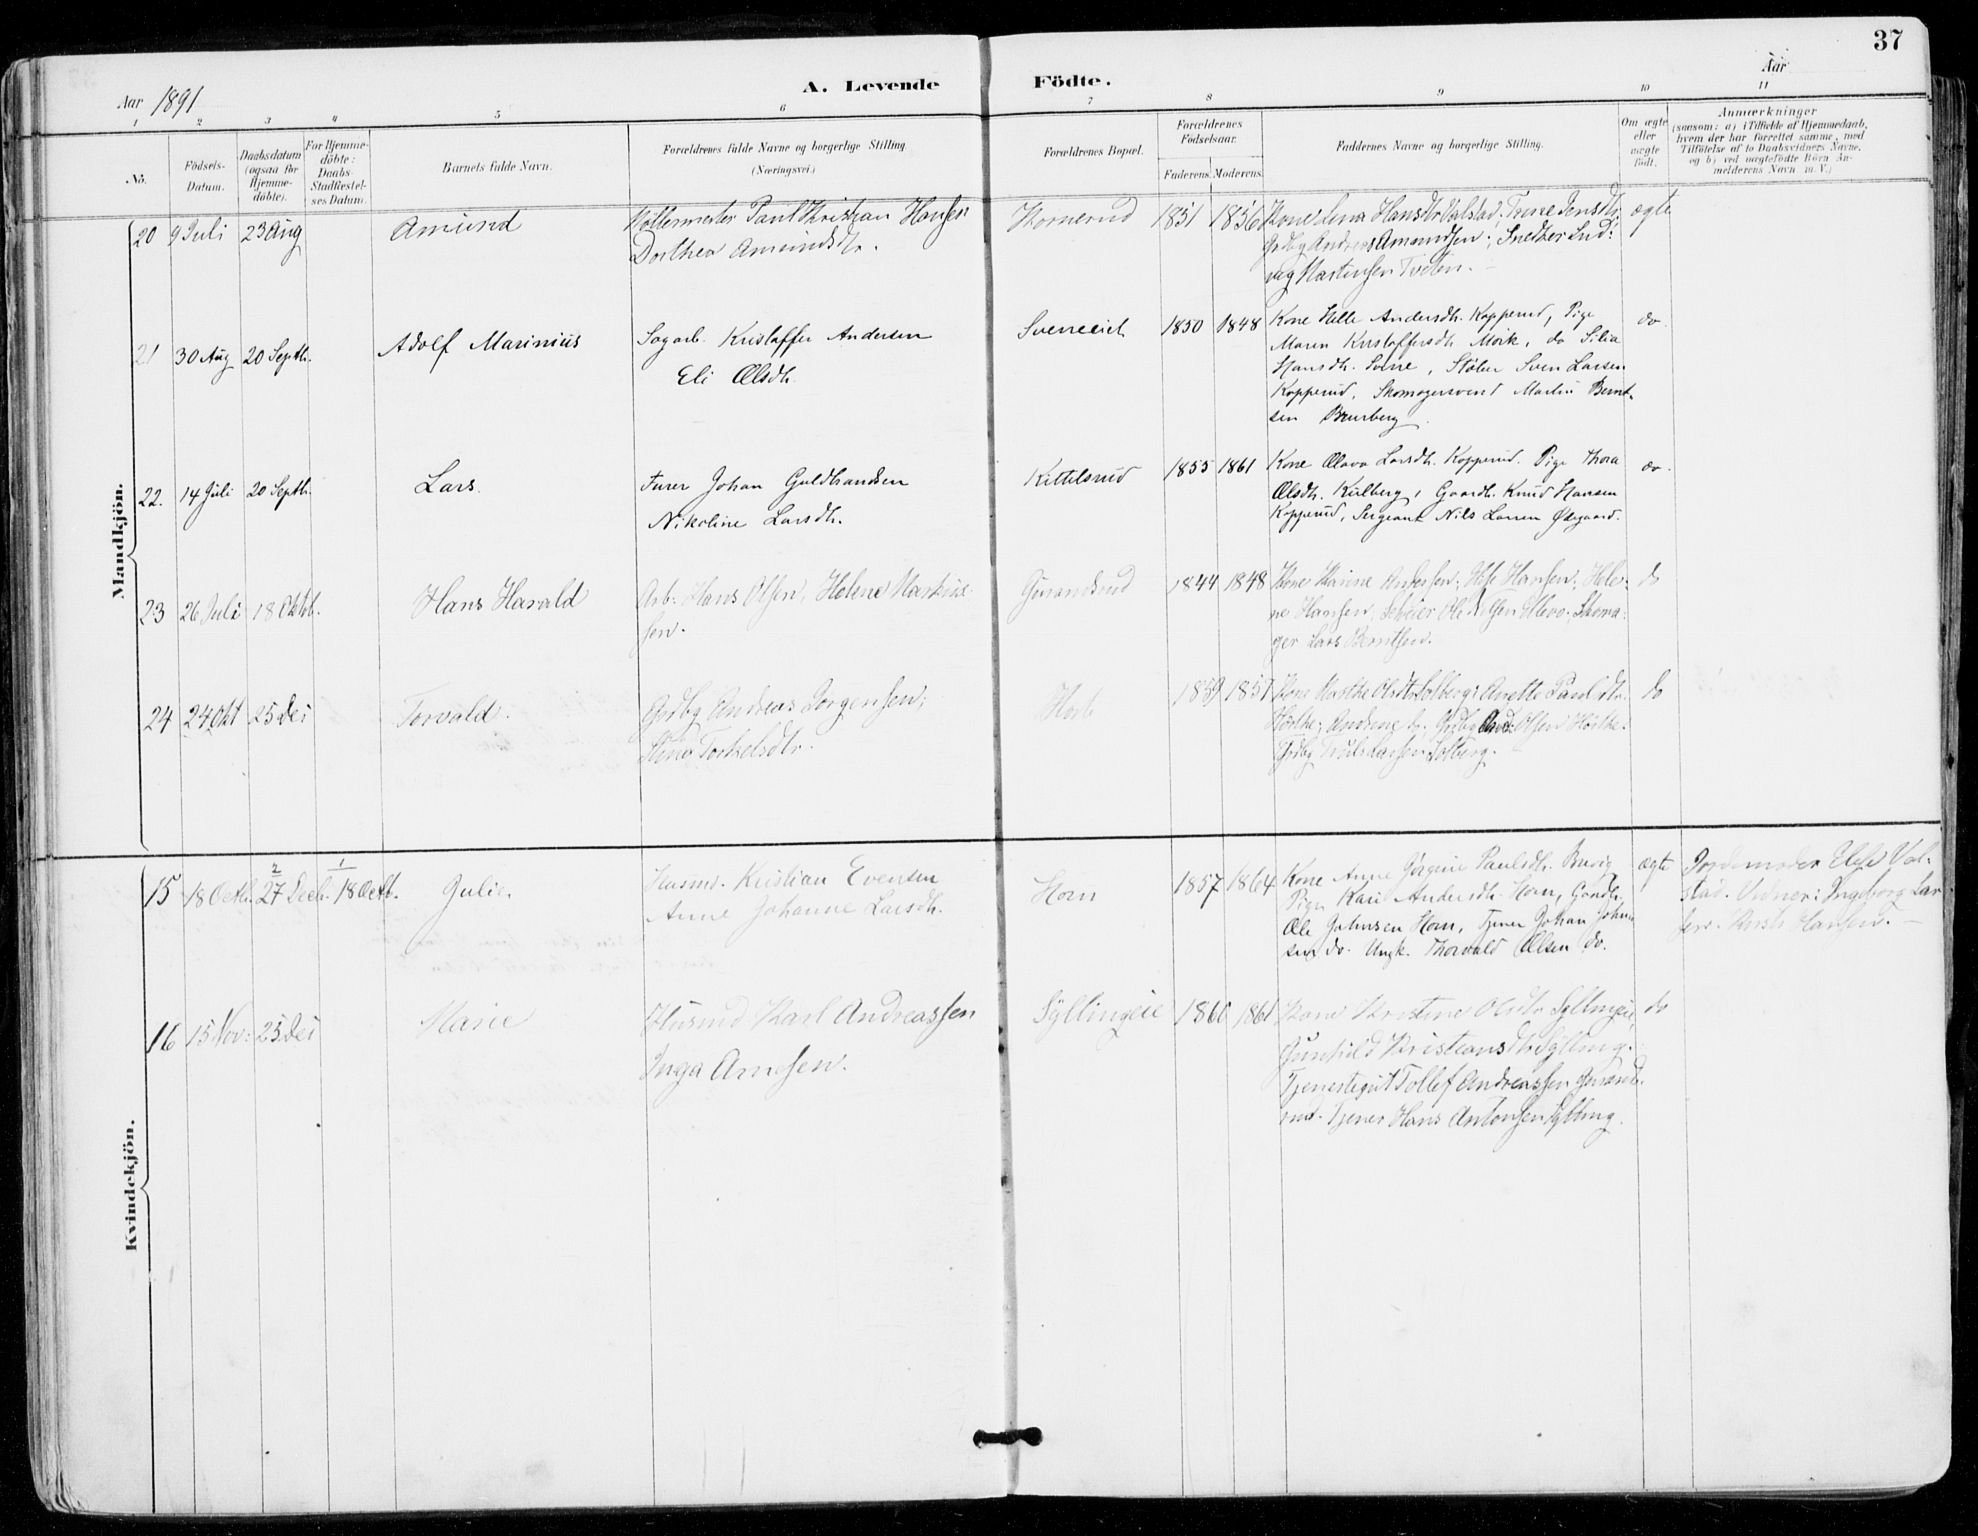 37
Aar 1891
A. Levende Födte.
Aar
1 2 3 4 5 6 7 8 9 10 11
No.
Födsels-Datum.
Daabsdatum (ogsaa for Hjemme-döbte).
For Hjemme-döbte: Daabs-Stadfæstel-ses Datum.
Barnets fulde Navn.
Forældrenes fulde Navne og borgerlige Stilling (Næringsvei.)
Forældrenes Bopæl.
Forældrenes Födselsaar.
Faderens. Moderens.
Faddernes Navne og borgerlige Stilling.
Om ægte eller uægte födt.
Anmærkninger
(saasom: a) i Tilfælde af Hjemmedaab, hvem der har forrettet samme, med Tilföielse af to Daabsvidners Navne, og b) ved uægtefödte Börn An-melderens Navn m. V.)
Mandkjön.
20 9 Juli 23 Aug Amund
Møllermester Paul Kristian Hansen
Dorthea Amundsdtr.
Kornerud 1851 1856
Kone Lina Hansdtr Valstad; Trine Jensdtr;
Grdbg Andreas Amundsen; Snedker Lud-
vig Martinsen Tveten.
ægte
21 30 Aug 20 Septb. Adolf Marinius
Sagarb. Kristoffer Andersen
Eli Olsdtr.
Sverreeiet 1850 1848
Kone Helle Andersdtr. Kopperud, Pige
Maren Kristoffersdtr. Mørk, do Silia
Hansdtr. Sverre, Støber Sven Larsen
Kopperud, Skomagersvend Martin Bernt-
sen Braaberg.
do.
22. 14 Juli 20 Septb. Lars.
Furer Johan Guldbrandsen
Nikoline Larsdtr.
Kittelsrud 1855 1861
Kone Olava Larsdtr. Kopperud. Pige Thora
Olsdtr. Kulberg, Gaardbr. Knud Hansen
Kopperud, Sergeant Nils Larsen Ødegaard.
do.
23 26 Juli 18 Oktb. Hans Harald
Arb: Hans Olsen, Helene Markus-
sen.
Gurandsrud 1844 1848
Kone Karine Andersen, Else Hansen; Hele-
ne Hansen, Ole Olsen; Skoma-
ger Lars Berntsen.
do
24 24 Okt 25 De
Torvald.
Grdbg Andreas Jørgensen;
Stina Torkelsdtr.
Horte 1859 1857
Kone Marthe Olsdtr Solberg; Anette Paulsdtr.
Horthe; Andrine; Grdbg And: Olsen Horthe.
Grdbg Truls Larsen Solberg.
do
Kvindekjön.
15 18 Octb. 2 27 Decb. 1 18 Octb. Julie.
Husmd. Kristian Evensen
Anne Johanne Larsdtr.
Horn 1857 1864
Kone Anne Jørgine Paulsdtr. Bruvig
Pige Kari Andersdtr. Horn, Gaardbr.
Ole Johnsen Horn, Tjener Johan John-
sen do. Ungk. Thorvald Olsen do.
ægte
Jordemoder Else Val-
stad. Vidner: Ingeborg Lar-
sen. Hansen.
16 15 Nov: 25 De Marie
Husmd Karl Andreassen
Inga Arnesen.
Syllingeie 1860 1861
Kone Kristine Olsdtr Syllingeie,
Gunhild Kristiansdtr Sylling.
Tjenestegut Tollef Andreassen Gurands-
rud. Tjener Hans Antonsen Sylling.
do